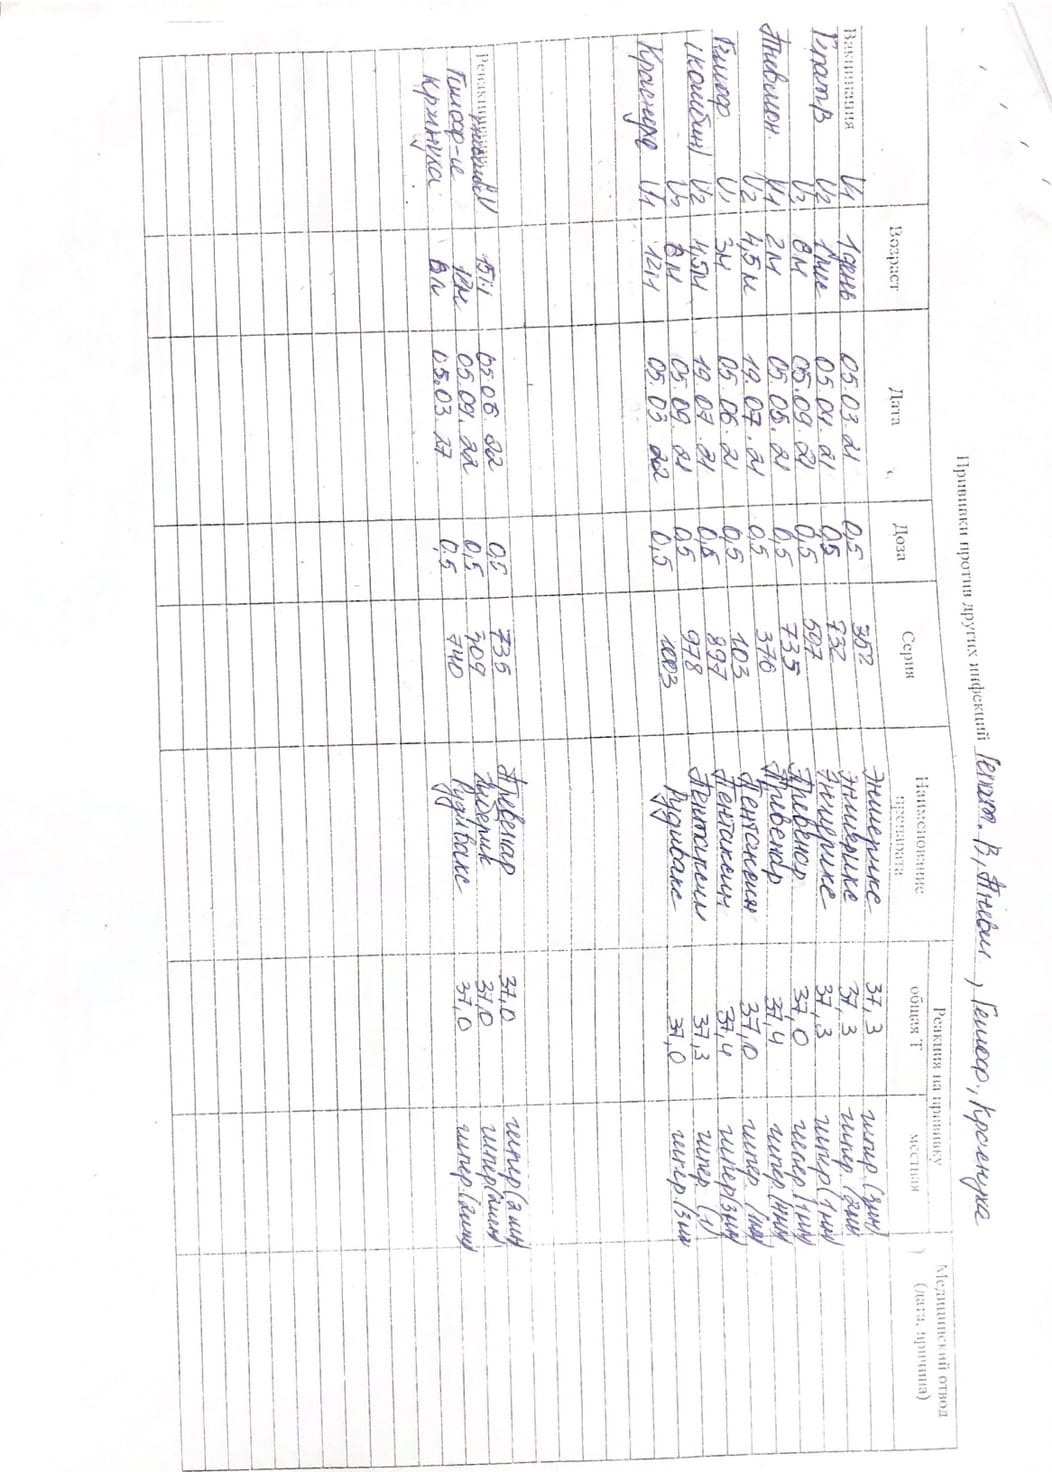 Прививки против других инфекций Гепат. В, Пневм, Гемоф, Краснуха
Вакцинация Возраст Дата Доза Серия Наименование препарата Реакция на прививку Медицинский отвод
общая Т местная (дата, причина)
V1 1 день 05.03.21 0,5 352 Энджерикс 37,3 гипер.(3мм)
Гепат В V2 1 мес 05.04.21 0,5 732 Энджерикс 37,3 гипер.(2мм)
V3 6м 05.09.21 0,5 527 Энджерикс 37,3 гипер(1мм)
Пневмон. V1 2м 05.05.21 0,5 735 Превенар 37,0 гипер.(1мм)
V2 4,5м 19.07.21 0,5 376 Превенар 37,4 гипер.(4мм)
Гемоф V1 3м 05.06.21 0,5 103 Пентаксим 37,0 гипер. (1мм)
(комбин) V2 4,5м 19.07.21 0,5 897 Пентаксим 37,4 гипер(3мм)
V3 6м 05.09.21 0,5 978 Пентаксим 37,3 гипер (1)
Краснуха V1 12м 05.03.22 0,5 1003 Рудивакс 37,0 гипер.(3мм
Ревакцинация
15м 05.06.22 0,5 735 Превенар 37,0 гипер(2мм)
Гемоф-ю 05.09.22 0,5 709 37,0 гипер(2мм)
Краснуха 6л 05.03.27 0,5 740 Рудивакс 37,0 гипер.(2мм)